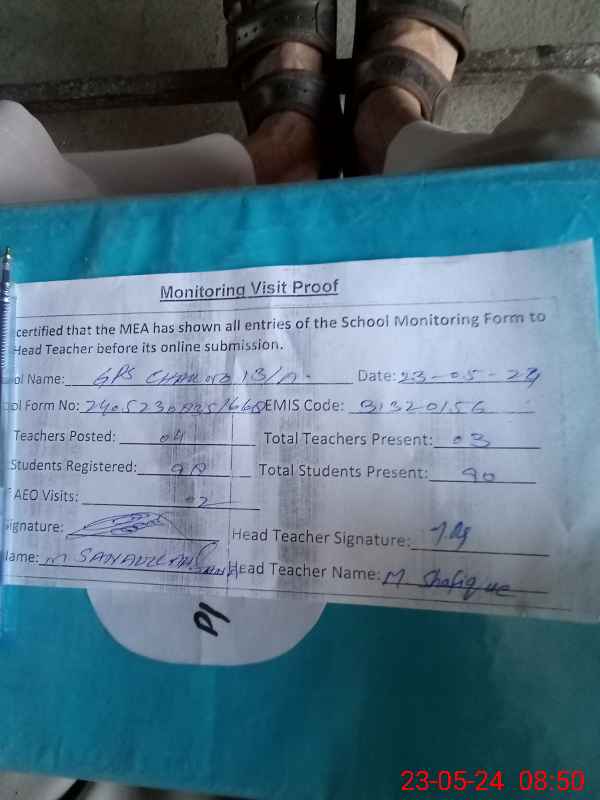 Monitoring Visit Proof
certified that the MEA has shown all entries of the School Monitoring Form to
Head Teacher before its online submission.
ool Name: GPS CHAK NO 13/A. Date: 23-05-24
ool Form No: EMIS Code: 31320156
Teachers Posted: 04 Total Teachers Present: 03
Students Registered: Total Students Present: 90
AEO Visits: 02
Signature: Head Teacher Signature:
Name: M SANAULLAH Head Teacher Name: M Shafique
P1
23-05-24 08:50